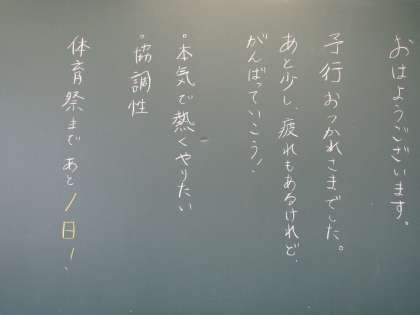 おはようございます。
予行おつかれさまでした。
あと少し、疲れもあるけれど、
がんばっていこう!
・本気で熱くやりたい
・協調性
体育祭まであと1日!